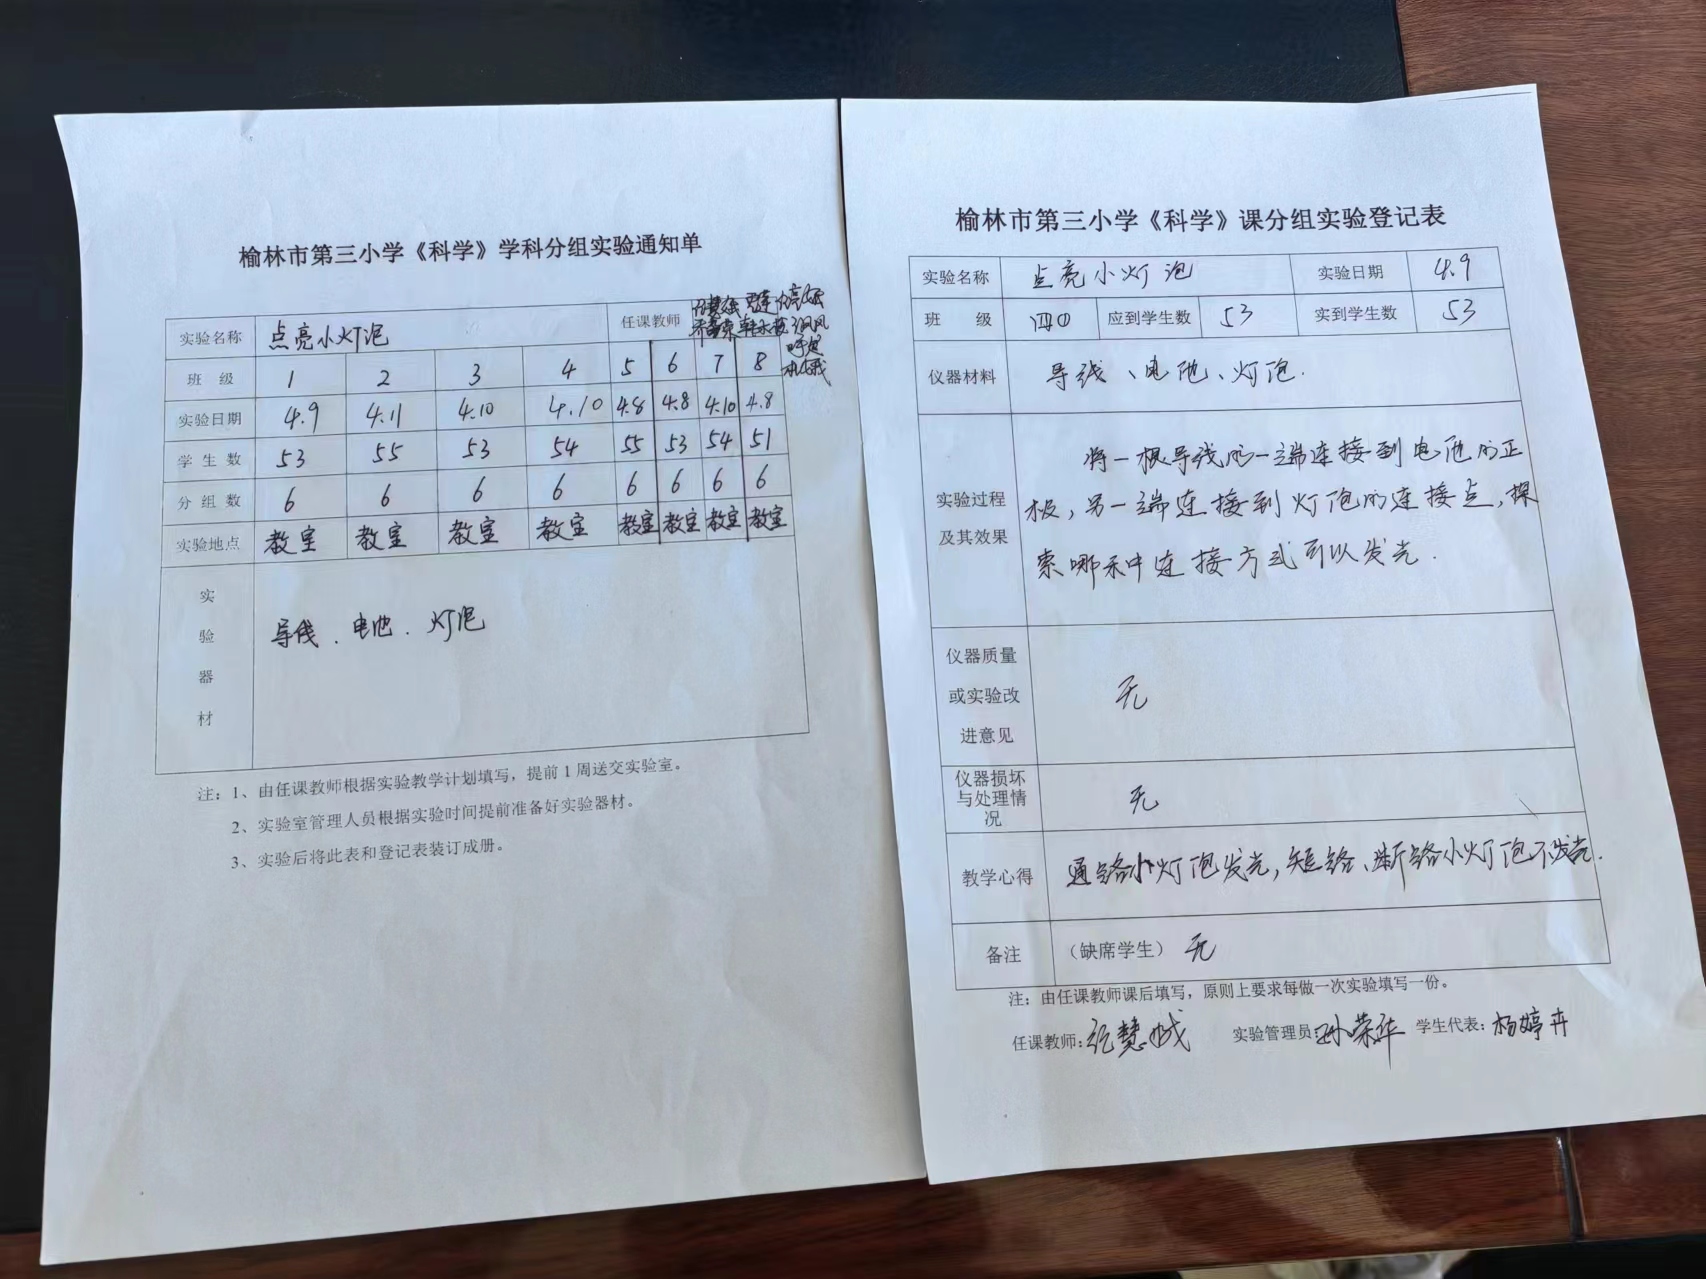 榆林市第三小学《科学》学科分组实验通知单
实验名称 点亮小灯泡 任课教师
班 级 1 2 3 4 5 6 7 8
实验日期 4.9 4.11 4.10 4.10 4.8 4.8 4.10 4.8
学 生 数 53 55 53 54 55 53 54 51
分 组 数 6 6 6 6 6 6 6 6
实验地点 教室 教室 教室 教室 教室 教室 教室 教室
实
验
器
材
导线、电池、灯泡
注：1、由任课教师根据实验教学计划填写，提前1周送交实验室。
2、实验室管理人员根据实验时间提前准备好实验器材。
3、实验后将此表和登记表装订成册。
榆林市第三小学《科学》课分组实验登记表
实验名称 点亮小灯泡 实验日期 4.9
班 级 四① 应到学生数 53 实到学生数 53
仪器材料 导线、电池、灯泡.
实验过程
及其效果
将一根导线的一端连接到电池的正
极，另一端连接到灯泡的连接点，探
索哪种连接方式可以发光.
仪器质量
或实验改
进意见
无
仪器损坏
与处理情
况
无
教学心得 通路小灯泡发光，短路、断路小灯泡不发光.
备注 （缺席学生） 无
注：由任课教师课后填写，原则上要求每做一次实验填写一份。
任课教师： 实验管理员 孙荣华 学生代表：杨婷卉